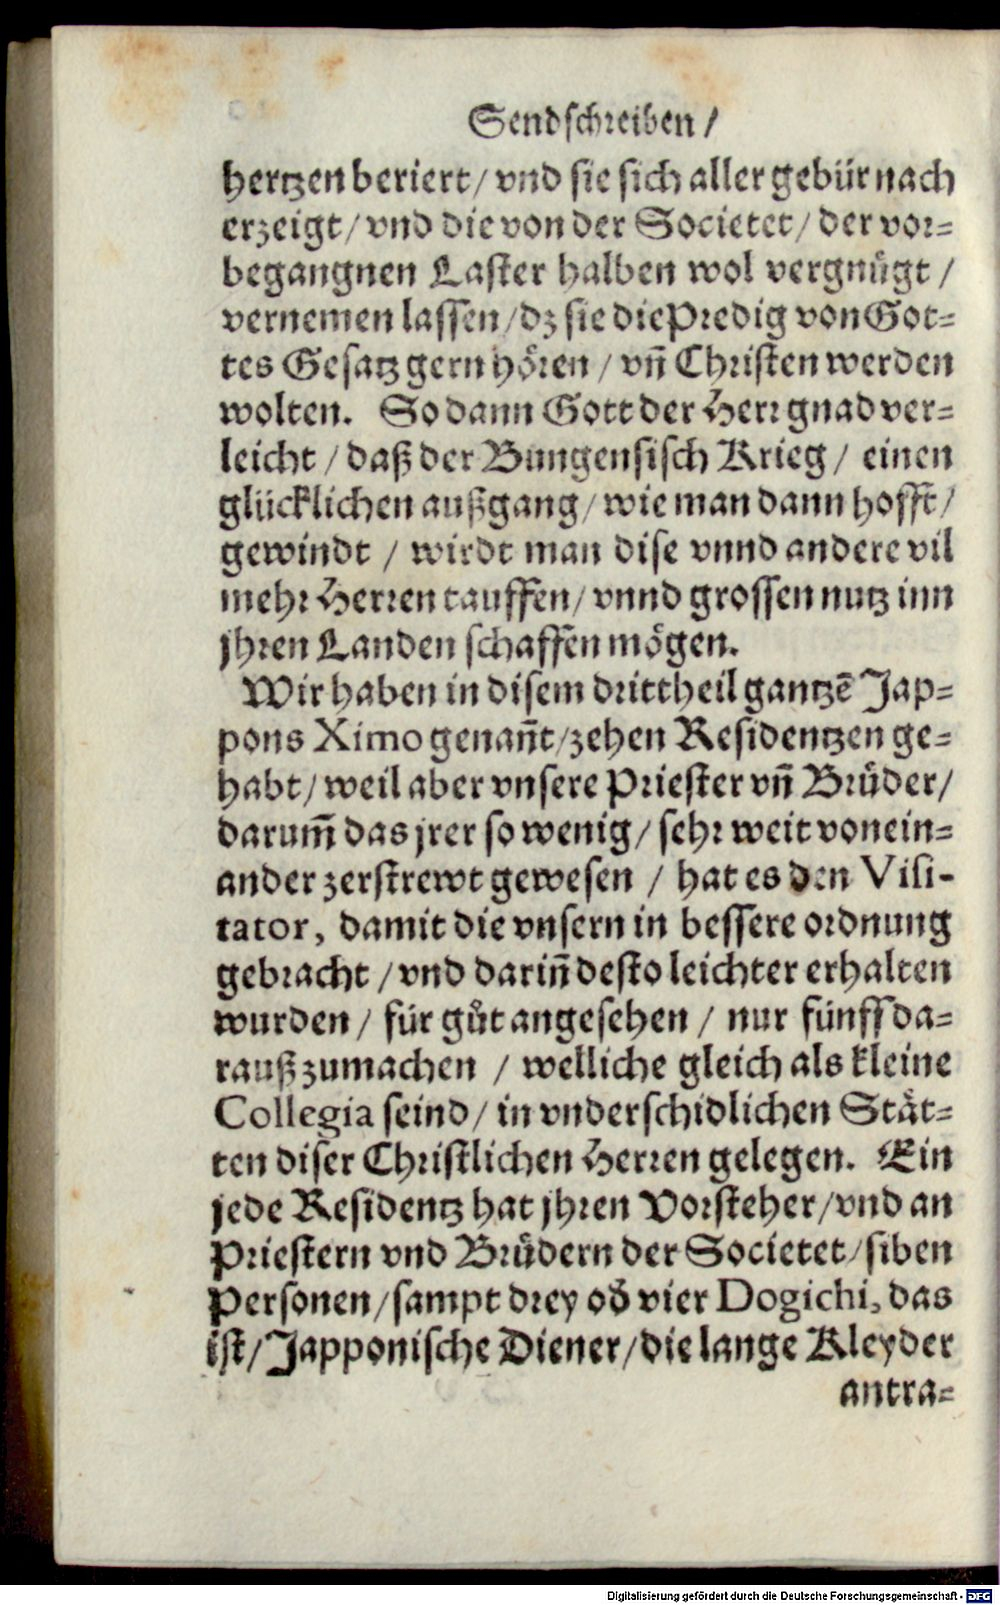 Sendschreiben /
hertzen beriert / vnd sie sich aller gebür nach
erzeigt / vnd die von der Societet / der vor-
begangnen Laster halben wol vergnügt /
vernemen lassen / dz sie die Predig von Got-
tes Gesatz gern hören / vñ Christen werden
wolten. So dann Gott der Herr gnad ver-
leicht / daß der Bungensisch Krieg / einen
glücklichen außgang / wie man dann hofft /
gewindt / wirdt man dise vnnd andere vil
mehr Herren tauffen / vnnd grossen nutz inn
jhren Landen schaffen mögen.
Wir haben in disem drittheil gantzẽ Jap-
pons Ximo genañt / zehen Residentzen ge-
habt / weil aber vnsere Priester vñ Brüder /
darum̃ das jrer so wenig / sehr weit vonein-
ander zerstrewt gewesen / hat es den Visi-
tator, damit die vnsern in bessere ordnung
gebracht / vnd dariñ desto leichter erhalten
wurden / für gůt angesehen / nur fünff da-
rauß zumachen / welliche gleich als kleine
Collegia seind / in vnderschidlichen Stät-
ten diser Christlichen Herren gelegen. Ein
jede Residentz hat jhren Vorsteher / vnd an
Priestern vnd Brüdern der Societet / siben
Personen / sampt drey od̕ vier Dogichi, das
ist / Japponische Diener / die lange Kleyder
antra-
Digitalisierung gefördert durch die Deutsche Forschungsgemeinschaft - DFG